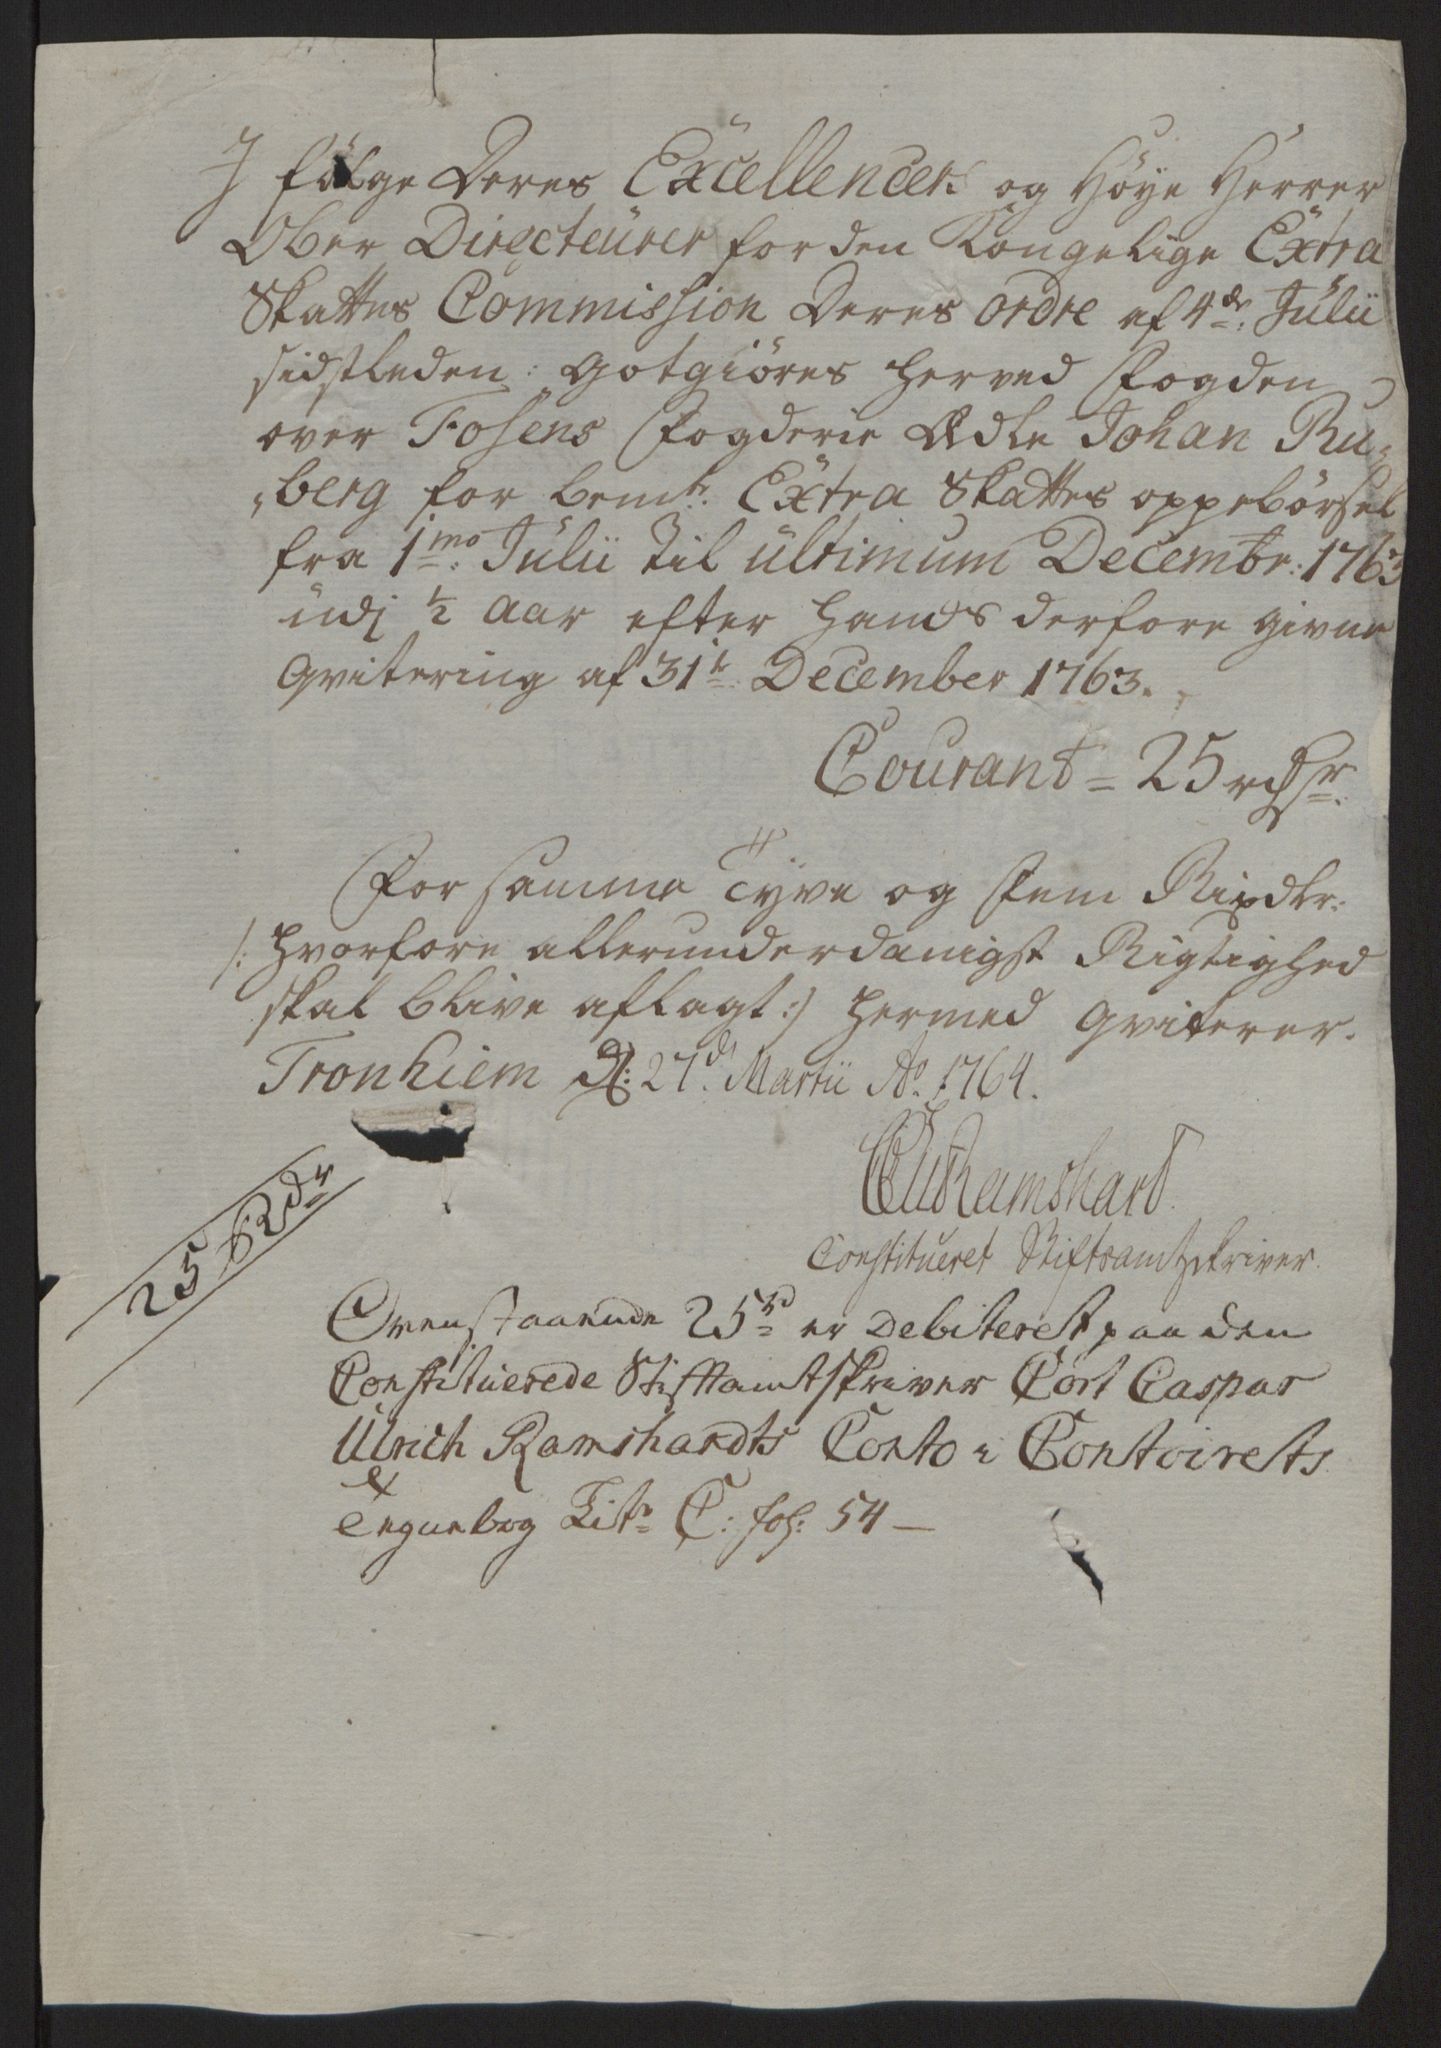 I følge Deres Excellencers og Høye Herrer
Ober Directeurer for den Kongelige Extra
Skattes Commission Deres Ordre af 4de Julii
sidstleden: Gotgiöres herved Fogden
over Fosens Fogderie Ædle Johan Ru-
berg for bemte: Extra Skattes oppebörsel
fra 1mo: Julii til ultimum Decembr: 1763
udj 1/2 Aar efter hands derfore givne
Qvitering af 31te December 1763.
Courant = 25 rdr.
For samme Tÿve og Fem Rixdlr:
/: hvorfore allerunderdanigst Rigtighed
skal blive aflagt :/ hermed Qviterer.
Tronhiem d: 27de Martii Ao. 1764.
CCURamshart
Constitueret Stiftsamtskriver.
25 Rdr
Ovenstaaende 25rd er Debiteret paa den
Constituerede Stifftamtskriver Cort Caspar
Ulrich Ramshardts Conto i Contoirets
Cegnebog Litr C: fol: 54 —